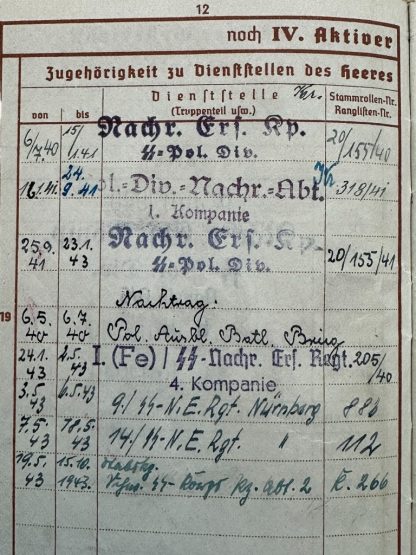 12
noch IV. Aktiver
Zugehörigkeit zu Dienststellen des Heeres
von bis Dienststelle (Truppenteil usw.) Stammrollen-Nr. Ranglisten-Nr.
6/7.40 15/1.41 Nachr. Ers. Kp. 20/155/40
SS-Pol. Div.
16.1.41 24.9.41 Pol.-Div.-Nachr.-Abt. 318/41
1. Kompanie
25.9.41 23.1.43 Nachr. Ers. Kp. 20/155/41
SS-Pol. Div.
Nachtrag:
19
6.5.40 6.7.40 Pol. Ausbl. Batl. Brieg
24.1.43 2.5.43 I. (Fe) / SS-Nachr. Ers. Regt. 205/40
4. Kompanie
3.5.43 6.5.43 9./SS-N.E.Rgt. Nürnberg 886
7.5.43 18.5.43 14./SS-N.E.Rgt. " 112
19.5.43 15.10.1943 SS- Abt. 2 K. 266